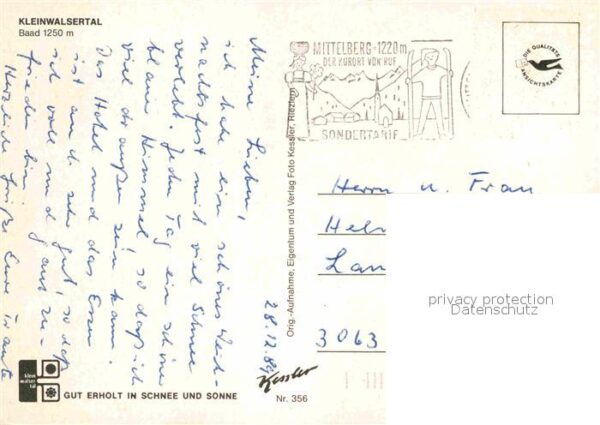 KLEINWALSERTAL
Baad 1250 m
Meine Lieben,
ich habe ein schönes Weih-
nachtsfest mit viel Schnee
verlebt. Jeden Tag ein schöner
blauer Himmel, so daß ich
viel draußen sein kann.
Das Hotel und das Essen
ist auch sehr gut, so daß
ich voll und ganz zu-
frieden bin.
Herzliche Grüße Eure Traute
28.12.89
MITTELBERG · 1220 m
DER KURORT VON RUF
SONDERTARIF
DIE QUALITÄTS
ANSICHTSKARTE
Orig.-Aufnahme, Eigentum und Verlag Foto Kessler, Riezlern
Herrn u. Frau
Hel
Lan
3063
privacy protection
Datenschutz
klein
walser
tal
GUT ERHOLT IN SCHNEE UND SONNE
Kessler
Nr. 356